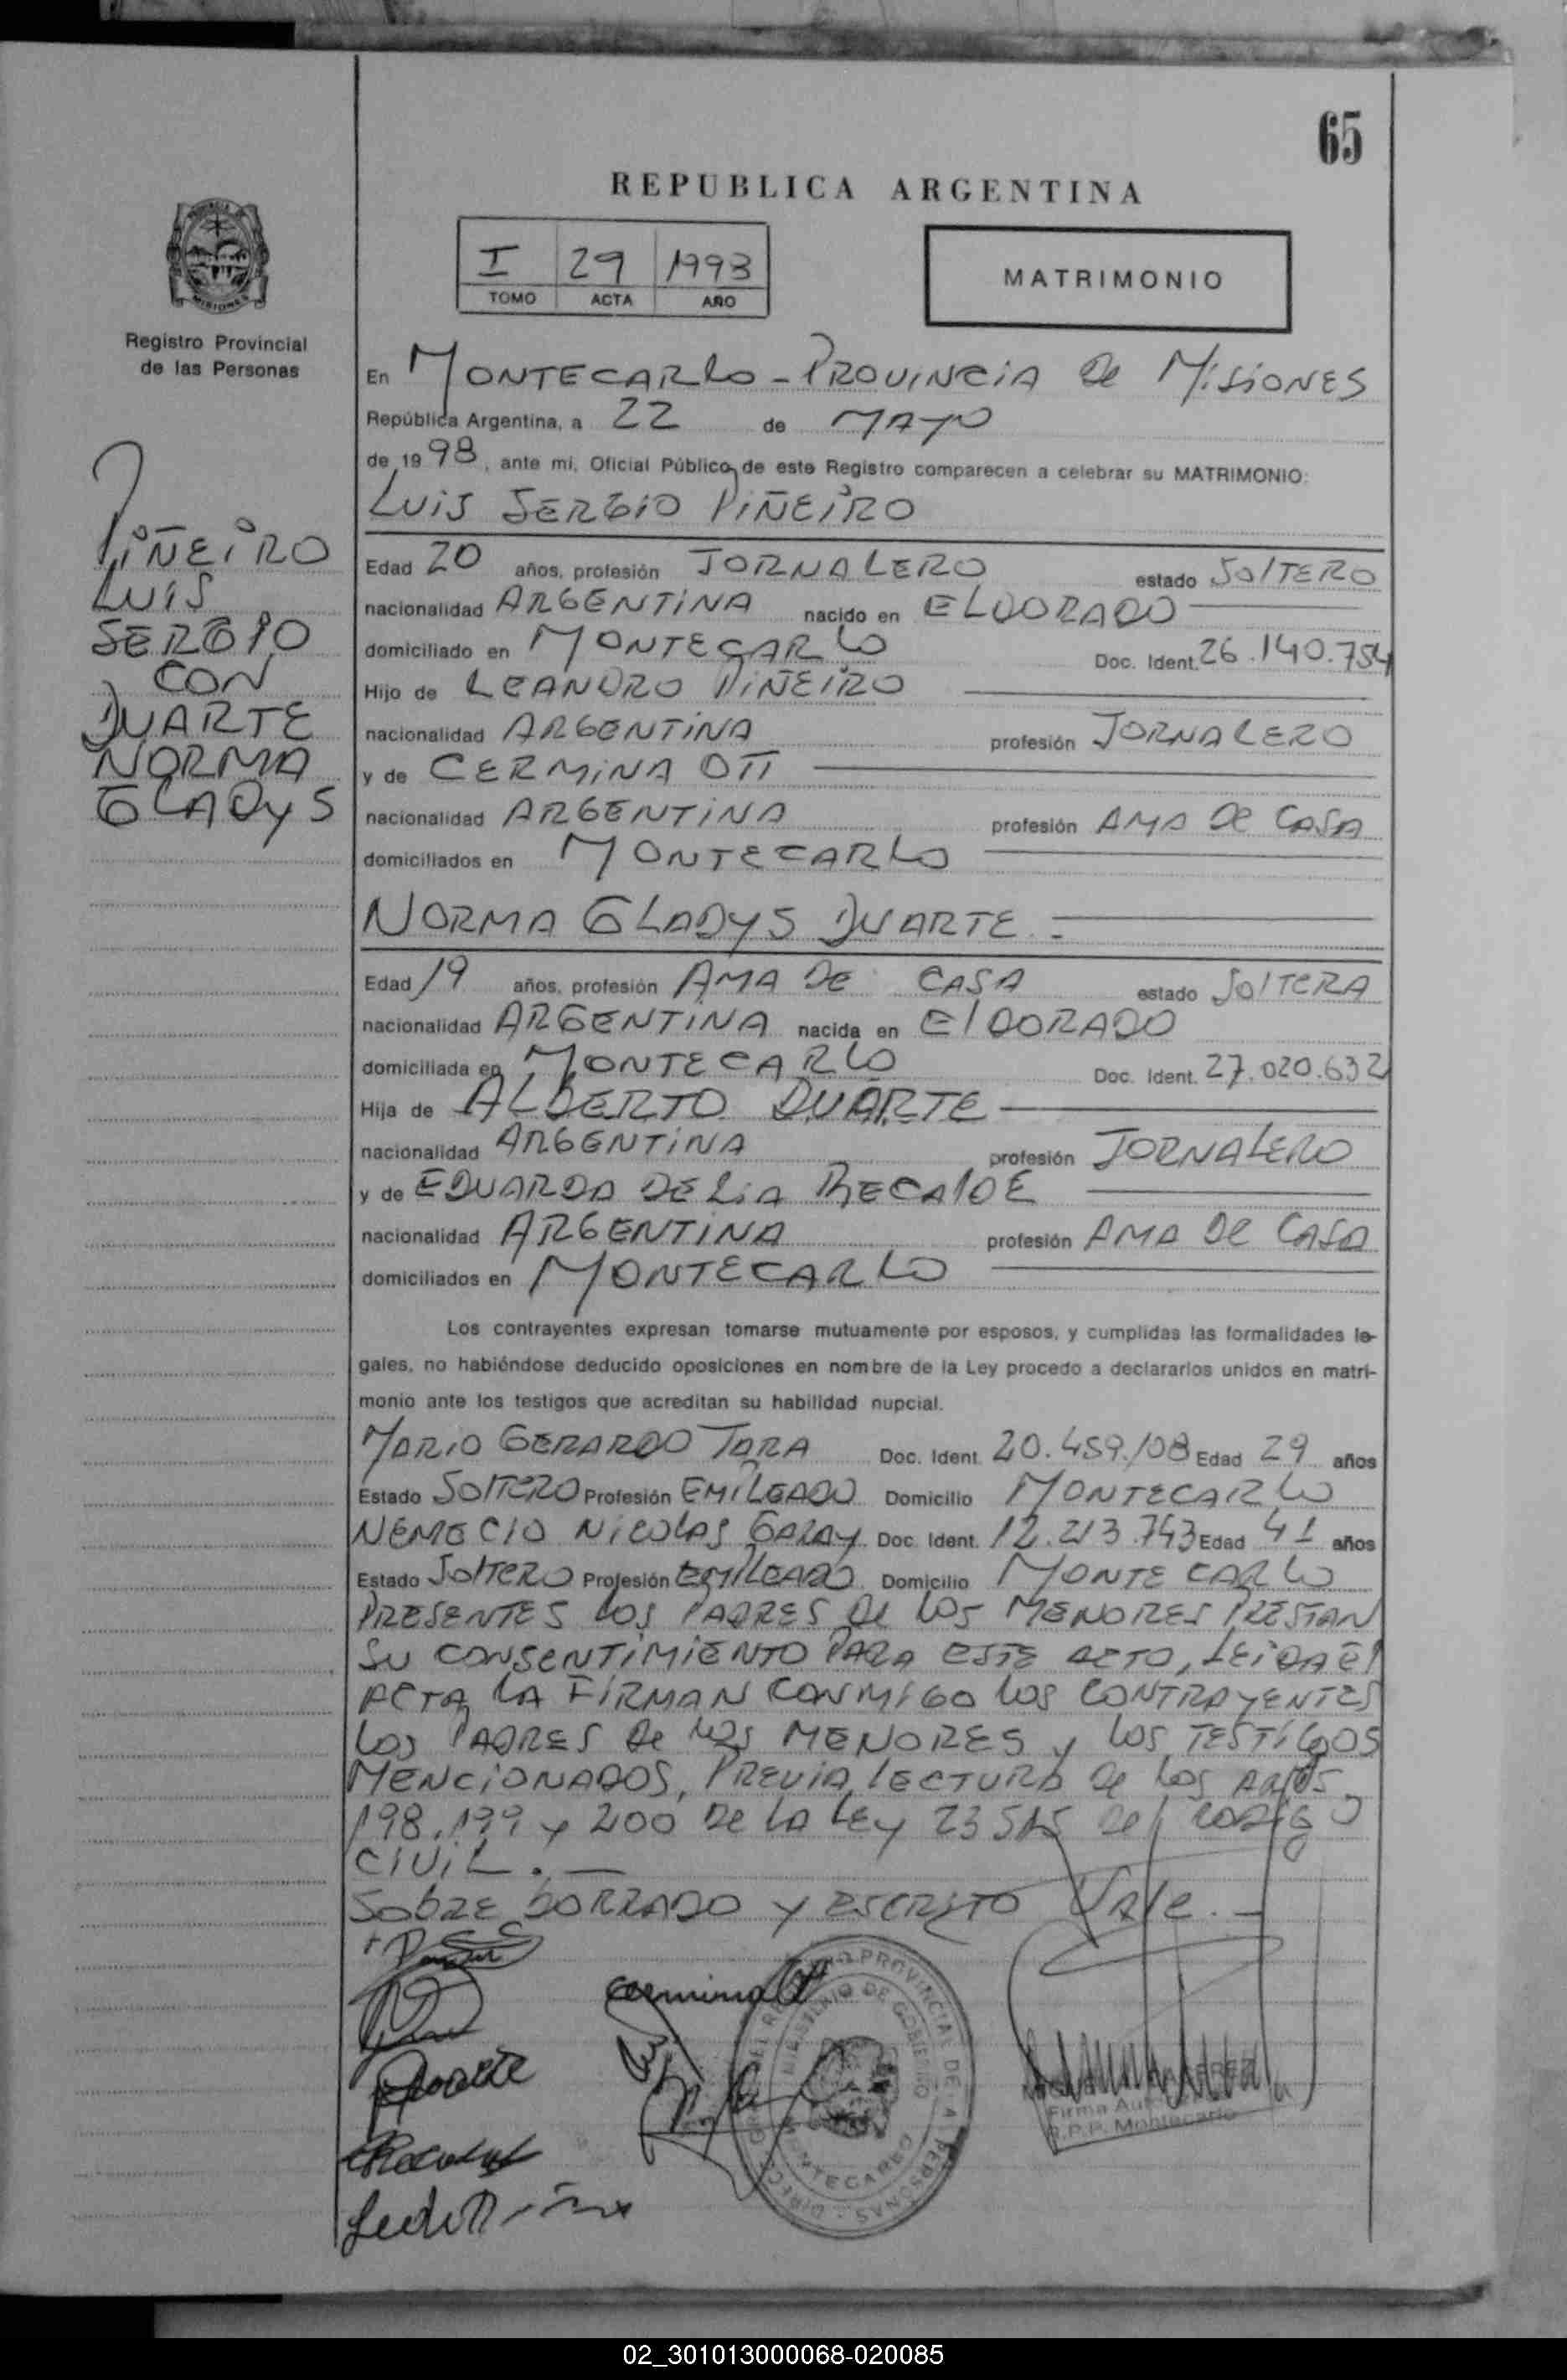 65
REPUBLICA ARGENTINA
I 29 1998
TOMO ACTA AÑO
MATRIMONIO
Registro Provincial
de las Personas
PIÑEIRO
LUIS
SERGIO
CON
DUARTE
NORMA
GLADYS
En MONTECARLO - PROVINCIA de MISIONES
República Argentina, a 22 de MAYO
de 1998, ante mí, Oficial Público de este Registro comparecen a celebrar su MATRIMONIO:
LUIS SERGIO PIÑEIRO
Edad 20 años, profesión JORNALERO estado SOlTERO
nacionalidad ARGENTINA nacido en ELDORADO
domiciliado en MONTECARLO Doc. Ident. 26.140.754
Hijo de LEANDRO PIÑEIRO
nacionalidad ARGENTINA profesión JORNALERO
y de CERMINA OTT
nacionalidad ARGENTINA profesión AMA DE CASA
domiciliados en MONTECARLO
NORMA GLADYS DUARTE.-
Edad 19 años, profesión AMA DE CASA estado SOlTERA
nacionalidad ARGENTINA nacida en ElDORADO
domiciliada en MONTECARLO Doc. Ident. 27.020.632
Hija de ALBERTO DUARTE
nacionalidad ARGENTINA profesión JORNALERO
y de EDUARDA DELIA RECAlDE
nacionalidad ARGENTINA profesión AMA DE CASA
domiciliados en MONTECARLO
Los contrayentes expresan tomarse mutuamente por esposos, y cumplidas las formalidades le-
gales, no habiéndose deducido oposiciones en nombre de la Ley procedo a declararlos unidos en matri-
monio ante los testigos que acreditan su habilidad nupcial.
MARIO GERARDO JARA Doc. Ident. 20.459.108 Edad 29 años
Estado SOlTERO Profesión EMPLEADO Domicilio MONTECARLO
NEMECIO NICOLAS GARAY Doc. Ident. 12.213.743 Edad 41 años
Estado SOlTERO Profesión EMPLEADO Domicilio MONTE CARLO
PRESENTES LOS PADRES DE LOS MENORES PRESTAN
SU CONSENTIMIENTO PARA ESTE ACTO, LEIDA El
ACTA LA FIRMAN CONMIGO LOS CONTRAYENTES
LOS PADRES de LOS MENORES y LOS TESTIGOS
MENCIONADOS, PREVIA LECTURA de LOS ARTOS.
198, 199 y 200 DE LA LEY 23515 del CODIGO
CIVIL.-
SOBRE BORRADO y ESCRITO VALE.-
Cermina Ott
Duarte
Recalde
DIRECC. GRAL. DEL REGISTRO PROVINCIAL DE LAS PERSONAS
MINISTERIO DE GOBIERNO
MONTECARLO
Firma
R.P.P. Montecarlo
02_301013000068-020085